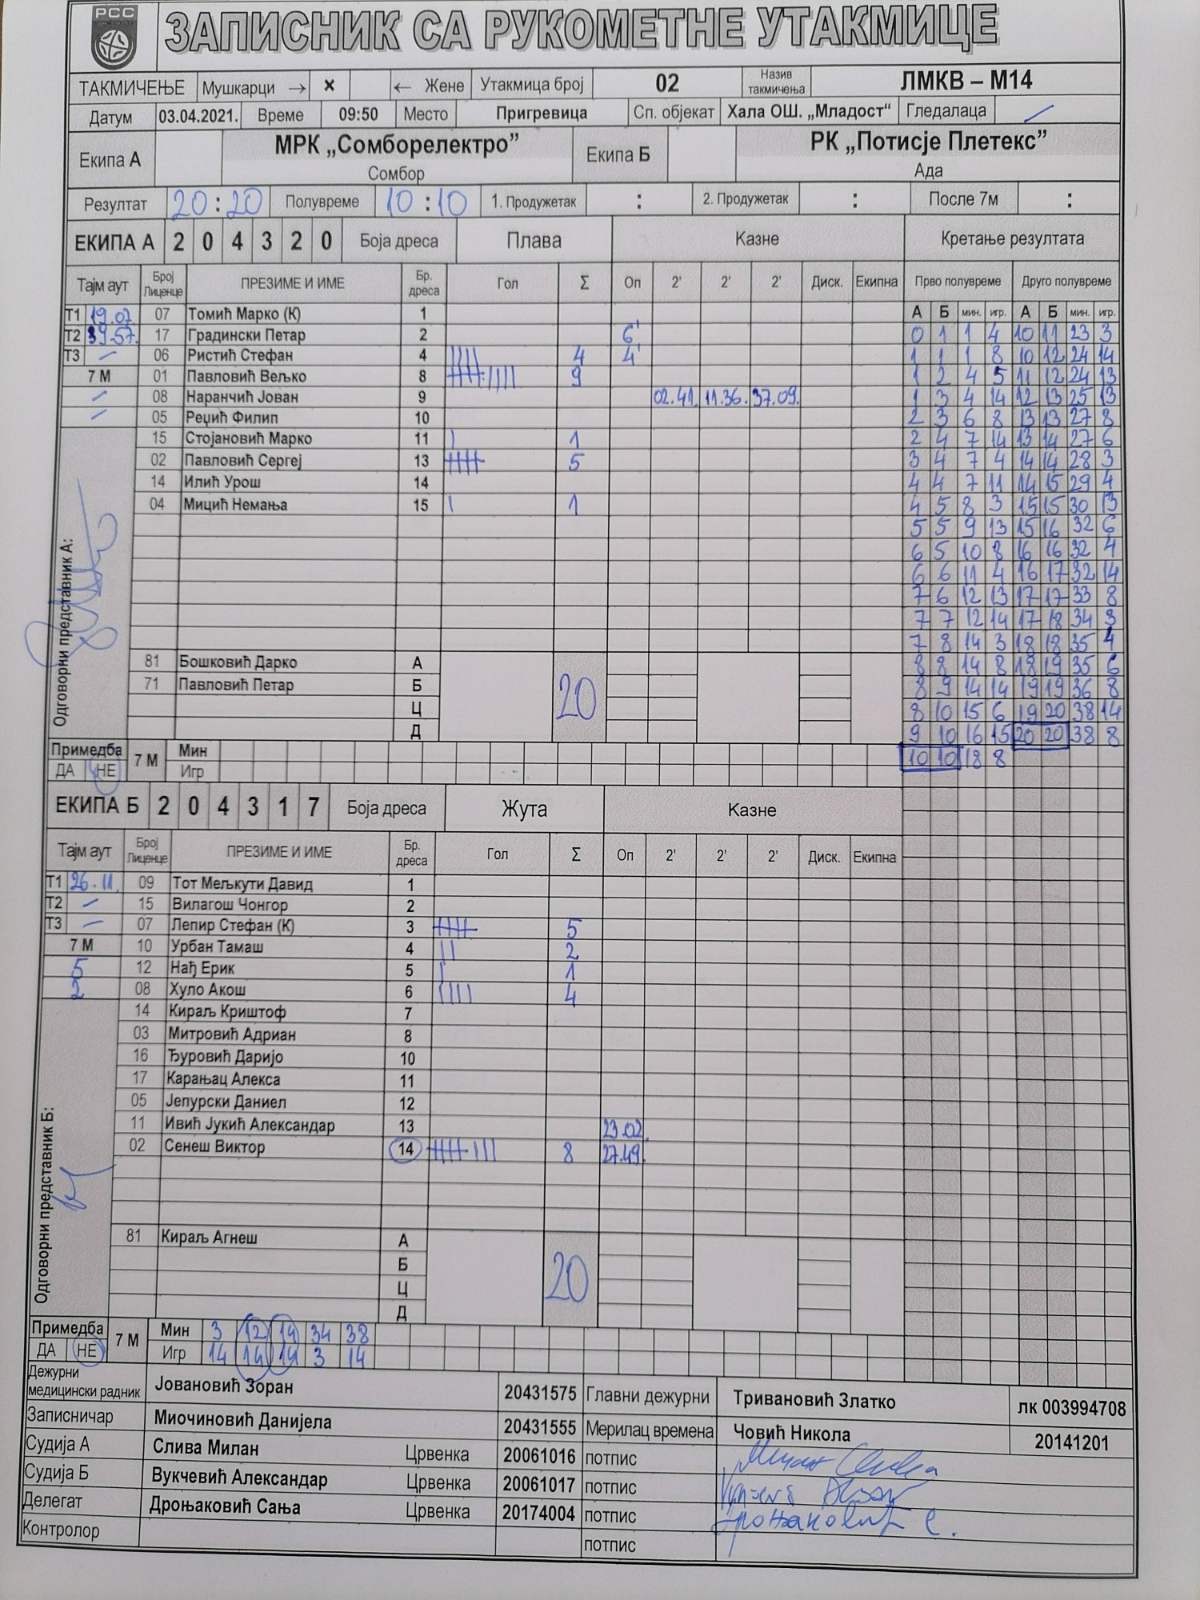 РСС
ЗАПИСНИК СА РУКОМЕТНЕ УТАКМИЦЕ
ТАКМИЧЕЊЕ Мушкарци → × ← Жене Утакмица број 02 Назив такмичења ЛМКВ – М14
Датум 03.04.2021. Време 09:50 Место Пригревица Сп. објекат Хала ОШ. „Младост“ Гледалаца
Екипа А МРК „Сомборелектро” Сомбор Екипа Б РК „Потисје Плетекс” Ада
Резултат 20:20 Полувреме 10:10 1. Продужетак : 2. Продужетак : После 7м :
ЕКИПА А 2 0 4 3 2 0 Боја дреса Плава Казне Кретање резултата
Тајм аут Број Лиценце ПРЕЗИМЕ И ИМЕ Бр. дреса Гол Σ Оп 2' 2' 2' Диск. Екипна Прво полувреме Друго полувреме
А Б мин. игр. А Б мин. игр.
Т1 19.07 07 Томић Марко (К) 1
Т2 39.57. 17 Градински Петар 2 6'
Т3 – 06 Ристић Стефан 4 |||| 4 4'
7 М 01 Павловић Вељко 8 9
– 08 Наранчић Јован 9 02.41. 11.36. 37.09.
– 05 Рецић Филип 10
15 Стојановић Марко 11 | 1
02 Павловић Сергеј 13 5
14 Илић Урош 14
04 Мицић Немања 15 | 1
0 1 1 4 10 11 23 3
1 1 1 8 10 12 24 14
1 2 4 5 11 12 24 13
1 3 4 14 12 13 25 13
2 3 6 8 13 13 27 8
2 4 7 14 13 14 27 6
3 4 7 4 14 14 28 3
4 4 7 11 14 15 29 4
4 5 8 3 15 15 30 13
5 5 9 13 15 16 32 6
6 5 10 8 16 16 32 4
6 6 11 4 16 17 32 14
7 6 12 13 17 17 33 8
7 7 12 14 17 18 34 3
7 8 14 3 18 18 35 4
8 8 14 8 18 19 35 6
8 9 14 14 19 19 36 8
8 10 15 6 19 20 38 14
9 10 16 15 20 20 38 8
10 10 18 8
Одговорни представник А:
81 Бошковић Дарко А
71 Павловић Петар Б 20
Ц
Д
Примедба ДА НЕ 7 М Мин
Игр
ЕКИПА Б 2 0 4 3 1 7 Боја дреса Жута Казне
Тајм аут Број Лиценце ПРЕЗИМЕ И ИМЕ Бр. дреса Гол Σ Оп 2' 2' 2' Диск. Екипна
Т1 26.11. 09 Тот Мељкути Давид 1
Т2 – 15 Вилагош Чонгор 2
Т3 – 07 Лепир Стефан (К) 3 5
7 М 10 Урбан Тамаш 4 || 2
5 12 Нађ Ерик 5 | 1
2 08 Хуло Акош 6 |||| 4
14 Кираљ Криштоф 7
03 Митровић Адриан 8
16 Ђуровић Даријо 10
17 Карањац Алекса 11
05 Јепурски Даниел 12
11 Ивић Јукић Александар 13 23.02.
02 Сенеш Виктор 14 8 27.49.
Одговорни представник Б:
81 Кираљ Агнеш А
Б 20
Ц
Д
Примедба ДА НЕ 7 М Мин 3 12 14 34 38
Игр 14 14 14 3 14
Дежурни медицински радник Јовановић Зоран 20431575 Главни дежурни Тривановић Златко лк 003994708
Записничар Миочиновић Данијела 20431555 Мерилац времена Човић Никола 20141201
Судија А Слива Милан Црвенка 20061016 потпис
Судија Б Вукчевић Александар Црвенка 20061017 потпис
Делегат Дроњаковић Сања Црвенка 20174004 потпис Дроњаковић С.
Контролор потпис